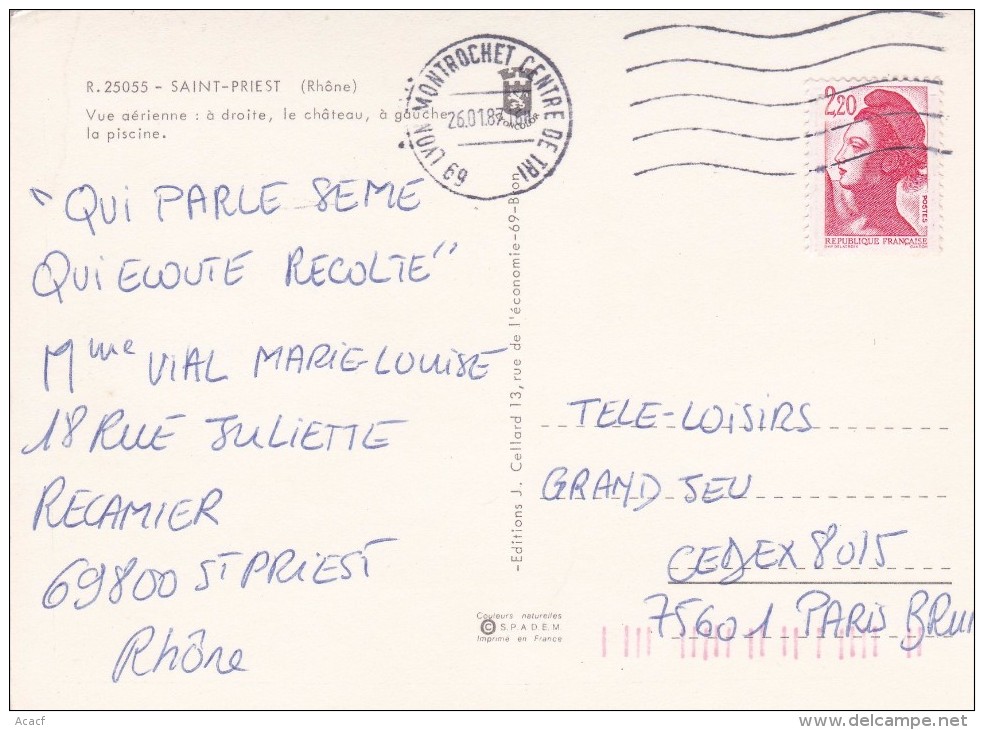 R.25055 - SAINT-PRIEST (Rhône)
Vue aérienne : à droite, le château, à gauche
la piscine.
"QUI PARLE SEME
QUI ECOUTE RECOLTE"
Mme VIAL MARIE-LOUISE
18 RUE JULIETTE
RECAMIER
69800 ST PRIEST
Rhône
69 LYON MONTROCHET CENTRE DE TRI
26.01.87
-Editions J. Cellard 13, rue de l'économie-69-Bron
Couleurs naturelles
© S.P.A.D.E.M.
Imprimé en France
2,20
POSTES
REPUBLIQUE FRANÇAISE
TELE-LOISIRS
GRAND JEU
CEDEX 8015
75601 PARIS BRUN
Acacf
www.delcampe.net